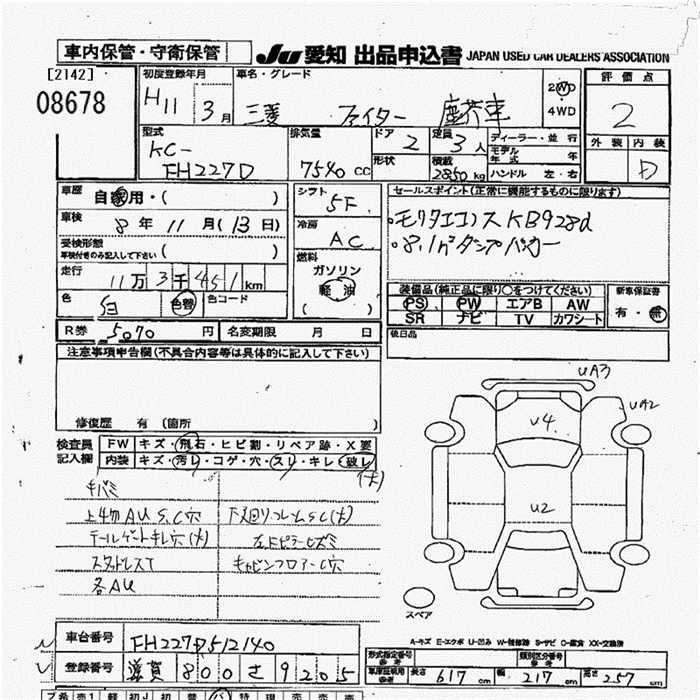 車内保管・守衛保管 JU 愛知 出品申込書 JAPAN USED CAR DEALERS ASSOCIATION
[2142] 初度登録年月 車名・グレード 評価点
08678 H11 3月 三菱 ファイター 塵芥車 2WD 4WD 2
型式 排気量 ドア 2 定員 3人 ディーラー・並行 外装 内装
KC-FH227D 7540cc 形状 積載 2850kg モデル年式 年 ハンドル 左・右 D
車歴 自家用・( ) シフト 5F セールスポイント(正常に機能するものに限ります)
車検 8年 11月(13日) 冷房 AC ・モリタエコノスKB928d
受検形態 車検付きのみ記入して下さい( ) ・8.1㎥ダンプパッカー
走行 11万3千451km 燃料 ガソリン 軽油 ( )
色 白 色替 色コード 装備品(純正品に限り○をつけてください) 新車保証書
PS PW エアB AW 有・無
SR ナビ TV カワシート
R券 5070円 名変期限 月 日 後日品
注意事項申告欄(不具合内容等は具体的に記入して下さい)
修復歴 有(箇所 )
UA3
UA2
U4
U2
検査員記入欄 FW キズ・飛石・ヒビ割・リペア跡・X要
内装 キズ・汚レ・コゲ・穴・スレ・キレ・破レ(大)
キバミ
上物AU S,C穴 下回りフレームSC(大)
テールゲートキレ穴(大) 左Fピラーヒズミ
スタッドレスT キャビンフロアーC穴
各AU
スペア
A-キズ E-エクボ U-凹み W-補修跡 S-サビ C-腐食 XX-交換済
車台番号 FH227D512140 形式指定番号 参考 類別区分番号 参考
登録番号 滋賀 800 さ 9205 車庫証明用 参考 長さ 617cm 幅 217cm 高さ 257cm